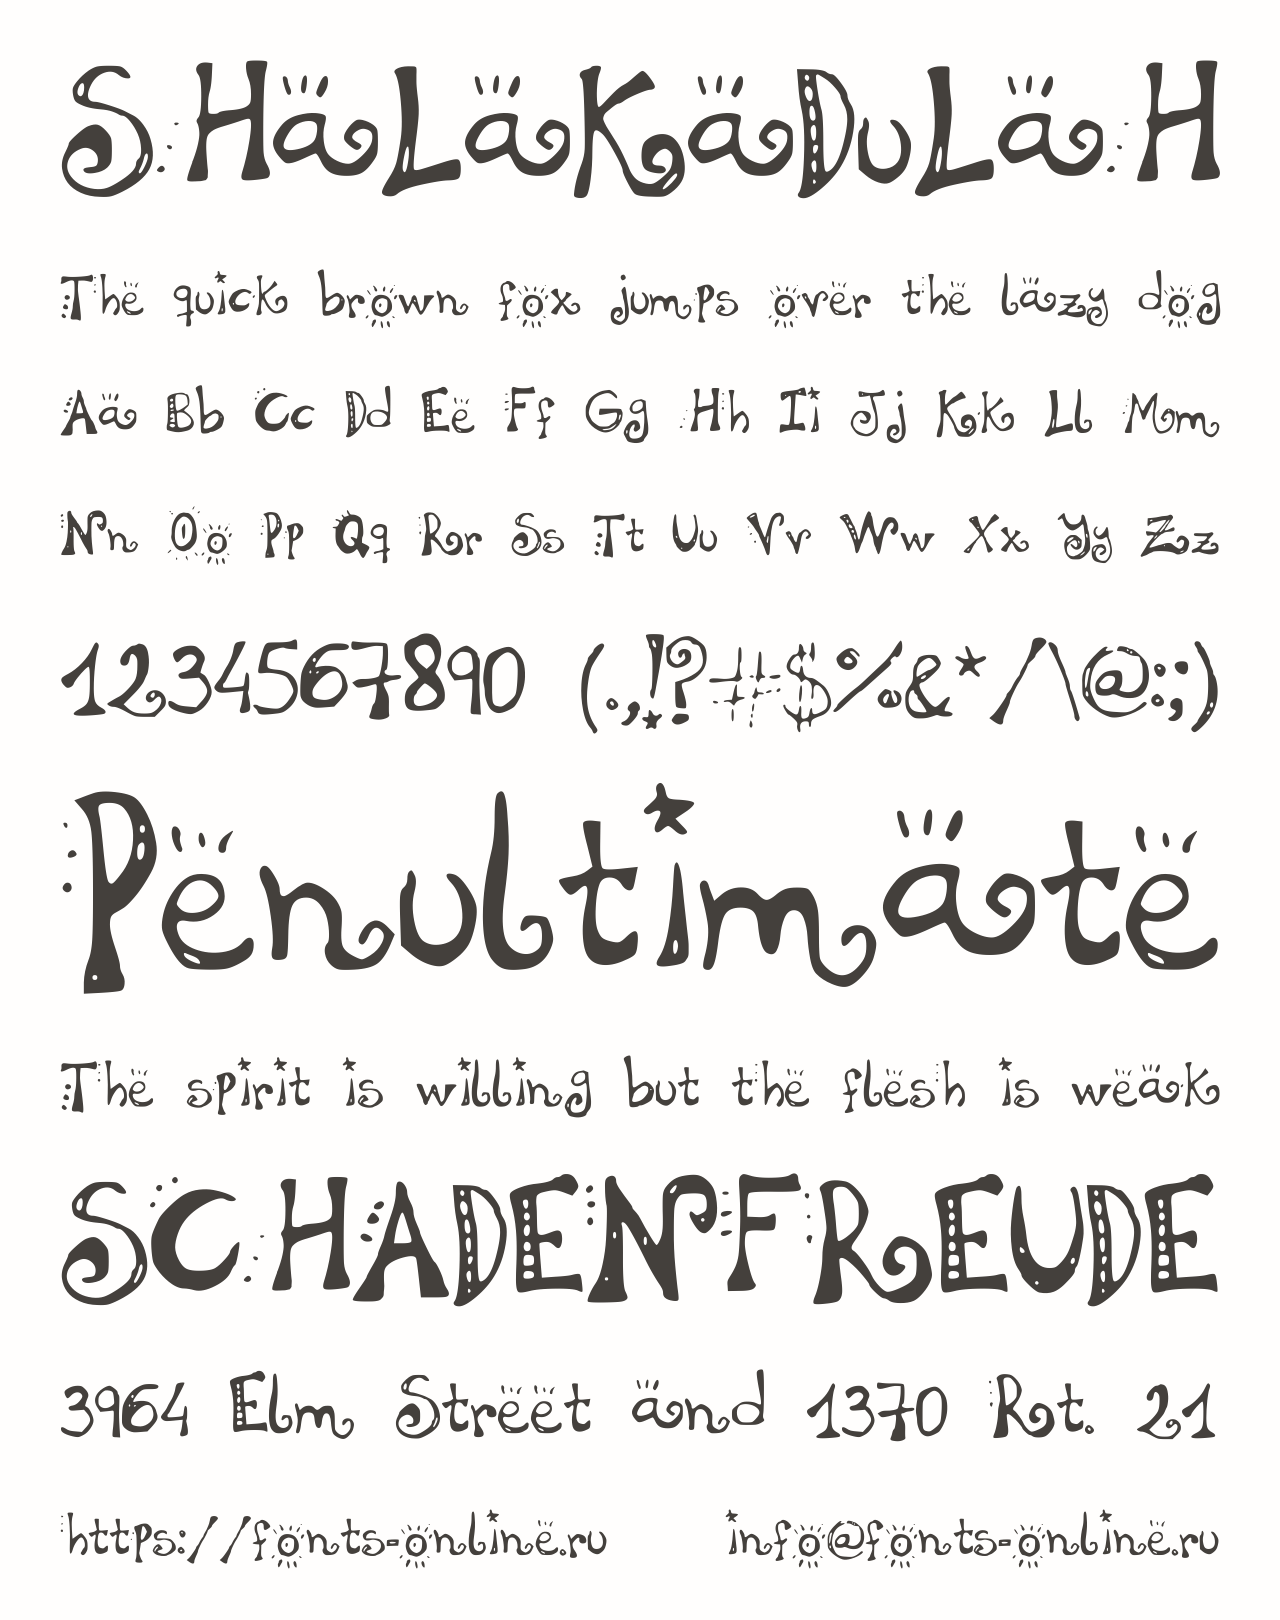 SHaLaKaDuLaH
The quick brown fox jumps over the lazy dog
Aa Bb Cc Dd Ee Ff Gg Hh Ii Jj Kk Ll Mm
Nn Oo Pp Qq Rr Ss Tt Uu Vv Ww Xx Yy Zz
1234567890 (.,!?#$%&*/\@:;)
Penultimate
The spirit is willing but the flesh is weak
SCHADENFREUDE
3964 Elm Street and 1370 Rt. 21
https://fonts-online.ru info@fonts-online.ru